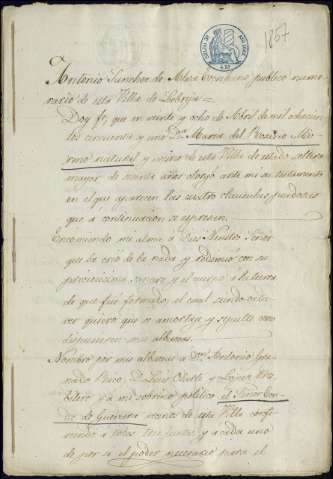 1857
Antonio Sanchez de Alva Escribano publico nume
rario de esta Villa de Lebrija =
Doy fé, que en veinte y ocho de Abril de mil ochocien
tos cincuenta y uno D.ª Maria del Rosario
natural y vecina de esta Villa de estado soltera
mayor de años otorgó ante mi su testamento
en el que aparecen las cuatro clausulas
que a continuacion se espresan.
Encomiendo mi alma a Dios Nuestro Señor
que la crió de la nada y redimió con su
preciosisima sangre, y el cuerpo a la tierra
de que fue formado, el cual siendo cada
ver quiero que se amortaje y sepulte como
dispusieren mis albaceas.
Nombro por mis albaceas a D. Antonio
D. Luis y Lopez Pres
bitero y a mi sobrino politico el Señor Con
de de vecinos de esta Villa confi
riendo a todos juntos, y a cada uno
de por si el poder necesario para el